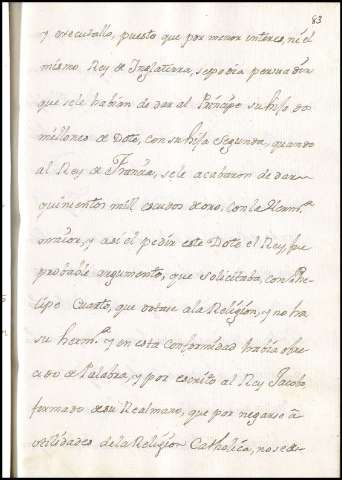 83
y executallo, puesto que por menor interes, ni el
mismo Rey de Inglaterra, sepodia persuadir
que sele habian de dar al Principe su hijo dos
millones de Dote, con su hija segunda, quando
al Rey de Francia, se le acabaron de dar
quinientos mill escudos de oro, con la Herm.ª
maior, y asi el pedir este Dote el Rey fue
probable argumento, que solicitaba, con Phe-
lipe Cuarto, que a la Religion, y no ha
su herm.ª y en esta conformidad habia ofre-
cido de Palabra, y por escrito al Rey Jacobo,
formado de su Real mano, que por negarse â
utilidades de la Religion Catholica, no se de-